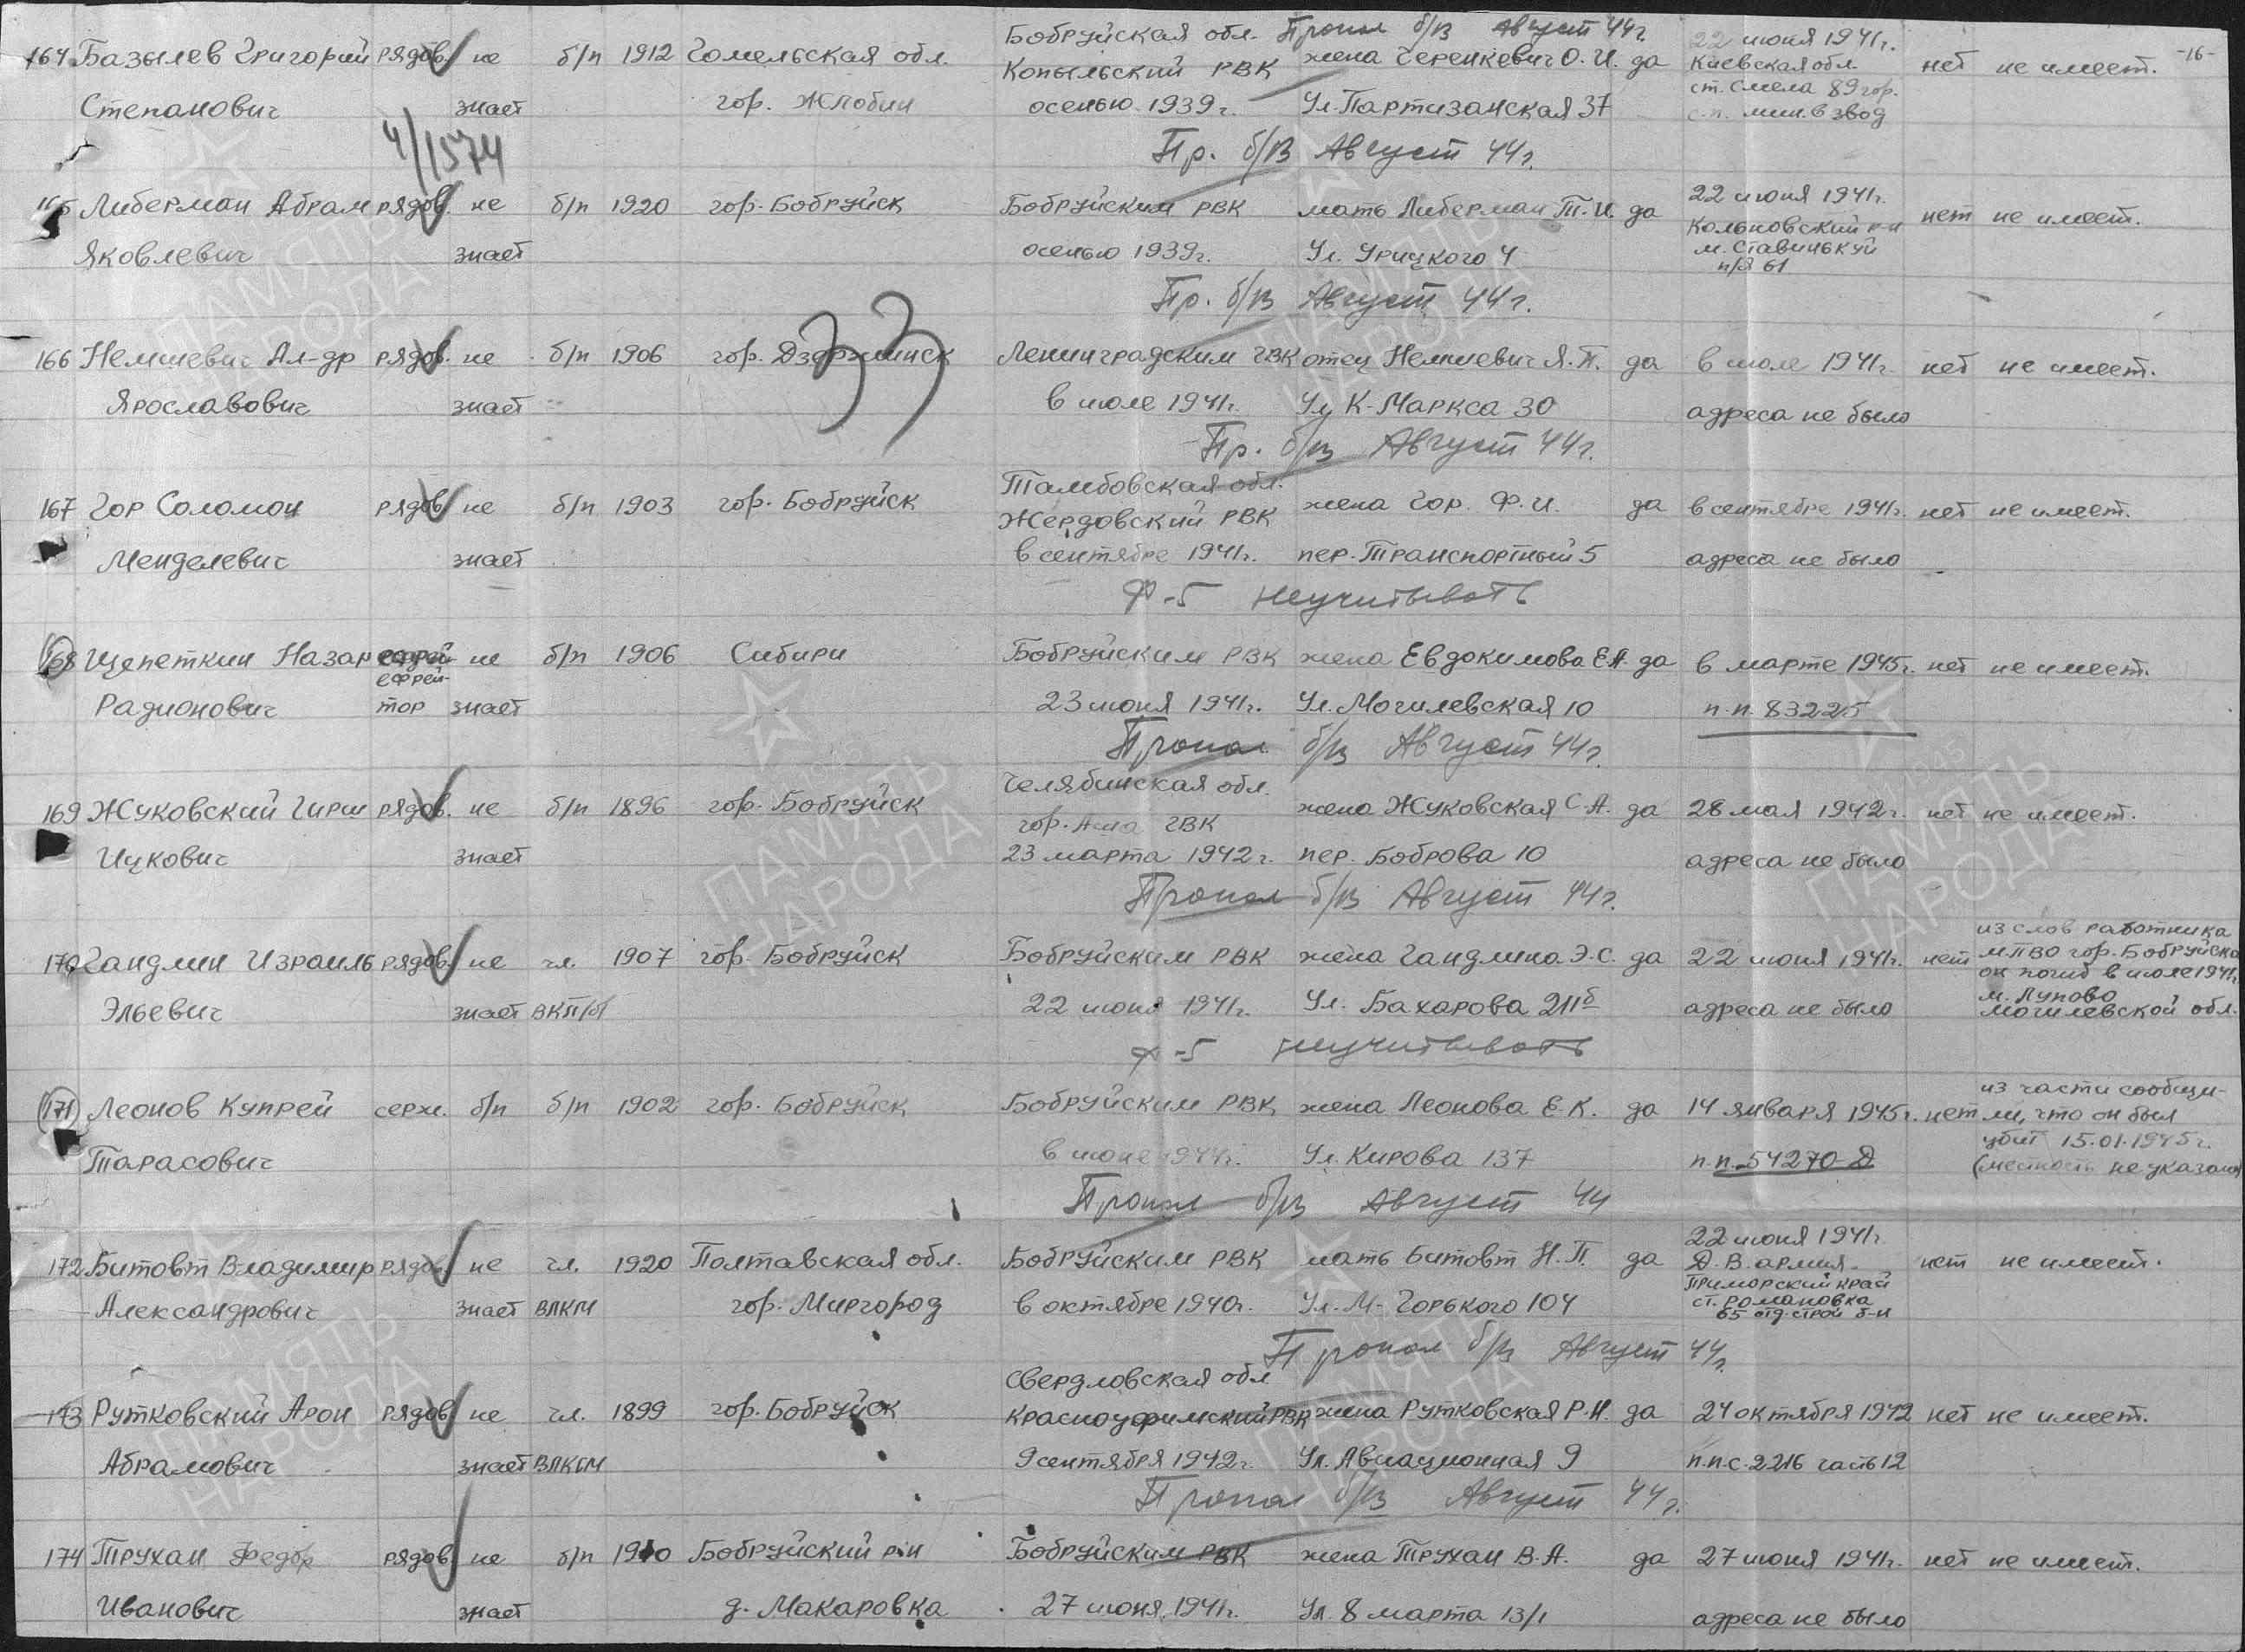 -16-
Бобруйская обл. Пропал б/в Август 44г
22 июня 1941г.
164 Базылев Григорий рядов. не б/п 1912 Гомельская обл. Копыльский РВК жена Черенкевич О.И. да Киевская обл нет не имеет.
ст. Смела 89 гор.
Степанович знает гор. Жлобин осенью 1939г. Ул. Партизанская 37 с.п. мин. взвод
4/1574
Пр. б/в Август 44г.
22 июня 1941г.
165 Либерман Абрам рядов. не б/п 1920 гор. Бобруйск Бобруйским РВК мать Либерман Т.И. да Кольновский р-н нет не имеет.
Яковлевич знает осенью 1939г. Ул. Урицкого 4 м. Ставинькуй
п/я 61
Пр. б/в Август 44г.
33
166 Немшевич Ал-др рядов. не б/п 1906 гор. Дзержинск Ленинградским ГВК отец Немшевич Я.П. да в июле 1941г. нет не имеет.
Ярославович знает в июле 1941г. Ул К-Маркса 30 адреса не было
Пр. б/в Август 44г.
Тамбовская обл.
167 Гор Соломон рядов. не б/п 1903 гор. Бобруйск Жердовский РВК жена Гор. Ф.И. да в сентябре 1941г. нет не имеет.
Менделевич знает в сентябре 1941г. пер. Транспортный 5 адреса не было
Ф-5 неучитывать
168 Щепеткин Назар ефрей- не б/п 1906 Сибири Бобруйским РВК жена Евдокимова Е.А. да в марте 1945г. нет не имеет.
ефрей-
Радионович тор знает 23 июня 1941г. Ул. Могилевская 10 п.п. 83225
Пропал б/в Август 44г.
Челябинская обл.
169 Жуковский Гирш рядов. не б/п 1896 гор. Бобруйск гор. Аша ГВК жена Жуковская С.А. да 28 мая 1942г. нет не имеет.
Ицкович знает 23 марта 1942г. пер. Боброва 10 адреса не было
Пропал б/в Август 44г.
из слов работника
170 Гандлин Израиль рядов. не чл. 1907 гор. Бобруйск Бобруйским РВК жена Гандлина Э.С. да 22 июня 1941г. нет МПВО гор. Бобруйска
он погиб в июле 1941г.
м. Лупово
Эльевич знает ВКП/б/ 22 июня 1941г. Ул. Бахарова 211б адреса не было Могилевской обл.
Ф-5 неучитывать
из части сообщи-
171 Леонов Купрей серж. б/п б/п 1902 гор. Бобруйск Бобруйским РВК жена Леонова Е.К. да 14 января 1945г. нет ли, что он был
убит 15.01.1945г.
Тарасович в июне 1944г. Ул. Кирова 137 п.п. 54270-Д (местность не указана)
Пропал б/в Август 44
22 июня 1941г.
172 Битовт Владимир рядов. не чл. 1920 Полтавская обл. Бобруйским РВК мать Битовт Н.П. да Д.В. армия. нет не имеет.
Приморский край
Александрович знает ВЛКМ гор. Миргород в октябре 1940г. Ул. М-Горького 104 ст. Романовка
65 отд. строй б-н
Пропал б/в Август 44г.
Свердловская обл
173 Рутковский Арон рядов. не чл. 1899 гор. Бобруйск Красноуфимский РВК жена Рутковская Р.И. да 24 октября 1942 нет не имеет.
Абрамович знает ВЛКСМ 9 сентября 1942г. Ул. Авиационная 9 п.п.с. 2216 часть 12
Пропал б/в Август 44г.
174 Трухан Федор рядов. не б/п 1910 Бобруйский р-н Бобруйским РВК жена Трухан В.А. да 27 июня 1941г. нет не имеет.
Иванович знает д. Макаровка 27 июня 1941г. Ул. 8 марта 13/1 адреса не было
ПАМЯТЬ НАРОДА